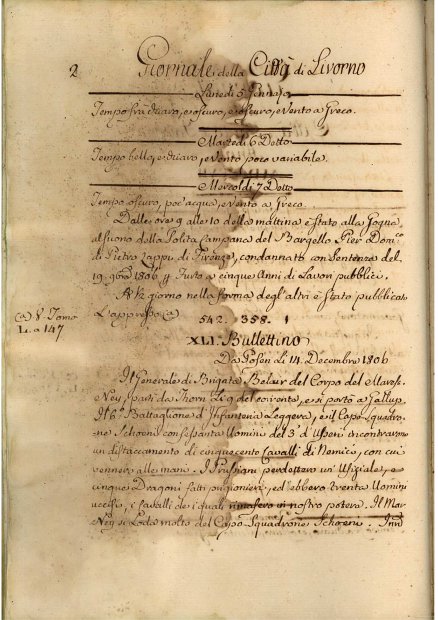 2 Giornale della Città di Livorno
Lunedì 5 Gennajo
Tempo fra chiaro, e oscuro, e oscuro, e Vento a Greco.
Martedì 6 Detto
Tempo bello, e chiaro, e Vento poco variabile.
Mercoldì 7 Detto
Tempo oscuro, poc'acqua, e Vento a Greco.
Dalle ore 9 alle 10 della mattina è stato alla Gogna,
al suono della solita Campana del Bargello Pier Dom.co
di Pietro Zappi di Firenze, condannato con Sentenza del
19 1806 p Furto a cinque Anni di Lavori pubblici.
A giorno nella forma degl'altri è stato pubblicato
L'appresso (a)
(a) V. Tomo
L. a 147
542. 358. 1
XLI. Bullettino
Da Posen Li 14. Decembre 1806
Il Generale di Brigata Belair del Corpo del Mares.
Ney, partì da Thorn Li 9 del corrente, e si portò a Gallup.
Il 6.º Battaglione d'Infanteria Leggera, e il Capo-Squadro-
ne Schoeni con sessanta Uomini del 3.º d'Usseri incontrarono
un distaccamento di cinquecento Cavalli di Nemico, con cui
vennero alle mani. I Prussiani perdettero un Ufiziale, e
cinque Dragoni fatti prigionieri, ed ebbero trenta Uomini
uccisi, i Cavalli dei quali rimasero in nostro potere. Il Mar.
Ney si Loda molto del Capo-Squadrone Schoeni.